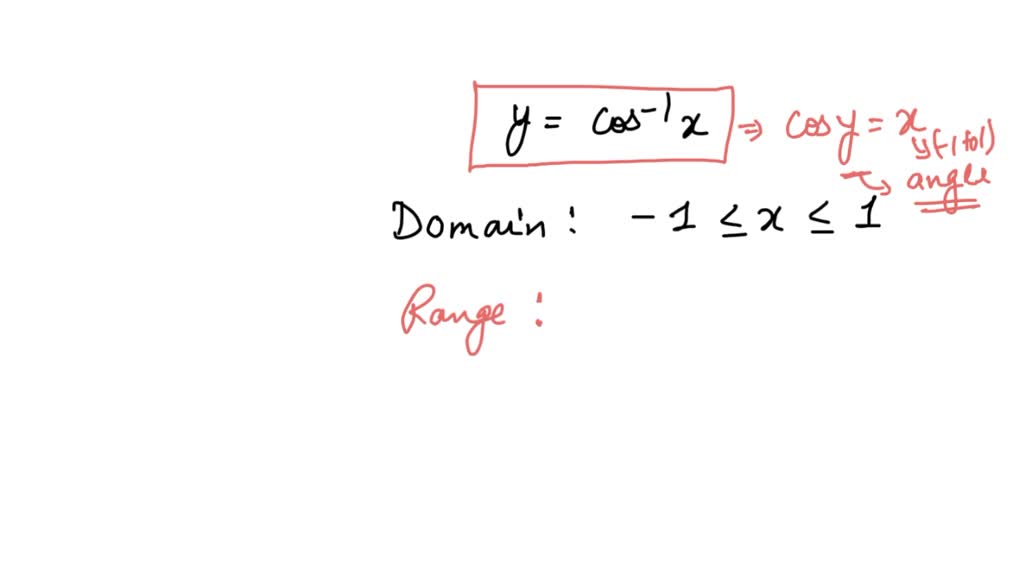 y = cos⁻¹ x ⇒ cos y = x
y(-1 to 1)
angle
Domain : -1 ≤ x ≤ 1
Range :